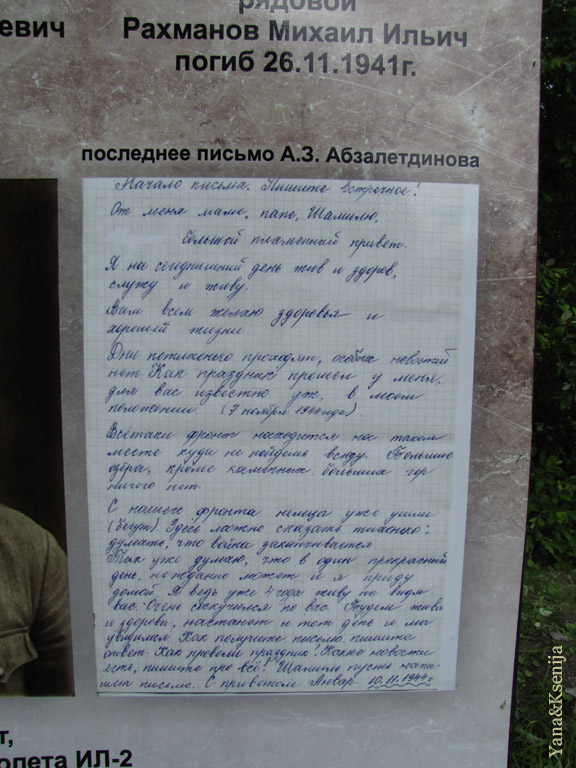 рядовой
евич
Рахманов Михаил Ильич
погиб 26.11.1941г.
последнее письмо А.З. Абзалетдинова
Начало письма. Пишите встречное!
От меня маме, папе, Шамилю,
большой пламенный привет.
Я на сегодняшний день жив и здоров,
служу и живу.
Вам всем желаю здоровья и
хорошей жизни.
Дни потихонечко проходят, особых новостей
нет. Как праздник прошел у меня,
для вас известно уж, в моем
положении. (7 ноября 1944 года)
Всётаки фронт находится на таком
месте куда не пойдешь всюду. Большие
озёра, кроме каменных больших гор
ничего нет.
С нашего фронта немцы уже ушли
(бегут) Здесь можно сказать тихонько:
думать, что война заканчивается
Так уже думаю, что в один прекрасный
день, неждано может и я приду
домой. Я ведь уже 4 года живу не видя
вас. Очень соскучился по вас. Будем живы
и здоровы, настанет и тот день и мы
увидимся. Как получите письмо пишите
ответ. Как провели праздник? Какие новости
есть, пишите про всё! Шамиль пусть
письмо. С приветом Анвар. 10.11.1944г
т,
олета ИЛ-2
Yana&Ksenija